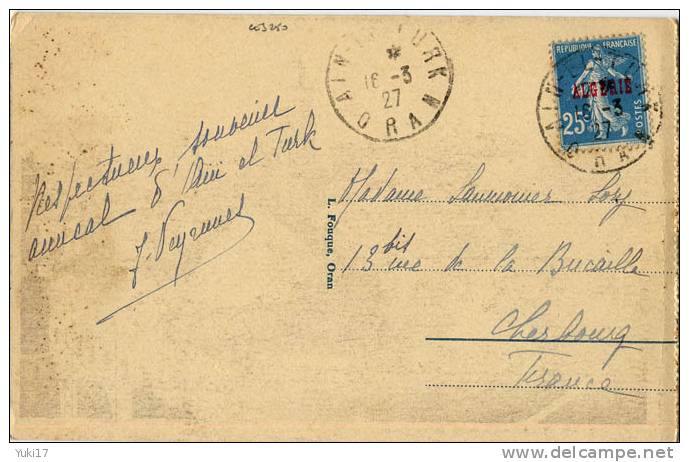 cos250
AIN-EL-TURK
*
16 -3
27
ORAN
REPUBLIQUE FRANÇAISE
ALGERIE
25c
POSTES
AIN-EL-TURK
16 -3
27
ORAN
Respectueux souvenir
annuel d'Ain el Turk
J. Veyrunes
L. Fouque, Oran
Madame Saumonier
13 bis rue de la Bucaille
Cherbourg
France
Yuki17
www.delcampe.net